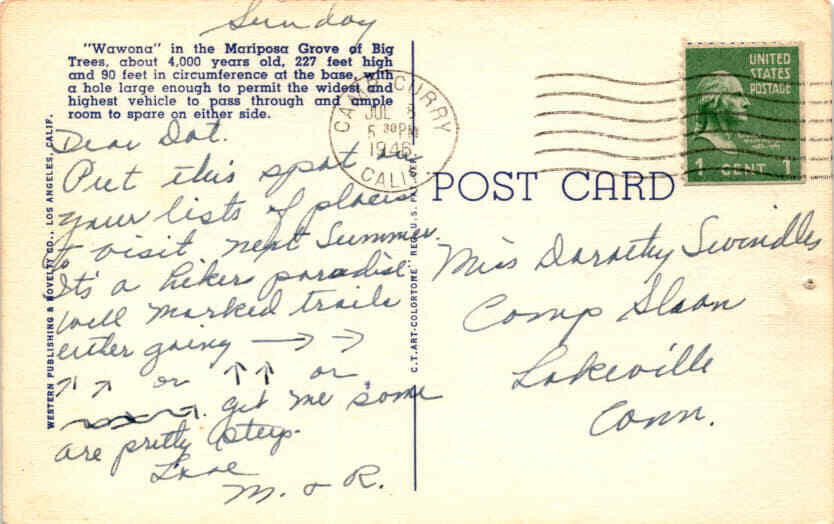 Sunday
"Wawona" in the Mariposa Grove of Big
Trees, about 4,000 years old, 227 feet high
and 90 feet in circumference at the base, with
a hole large enough to permit the widest and
highest vehicle to pass through and ample
room to spare on either side.
Dear Dot.
Put this spot on
your lists of places
to visit next Summer
It's a hikers paradise
well marked trails
either going → →
↑ ↑ or ↑ ↑ or
get me some
are pretty steep.
Love
M. & R.
WESTERN PUBLISHING & NOVELTY CO., LOS ANGELES, CALIF.
C.T. ART-COLORTONE REG. U.S. PAT. OFF.
CAMP CURRY
JUL
5 30 PM
1946
CALIF.
UNITED
STATES
POSTAGE
1 CENT 1
POST CARD
Miss Dorothy Swindles
Camp Sloan
Lakeville
Conn.